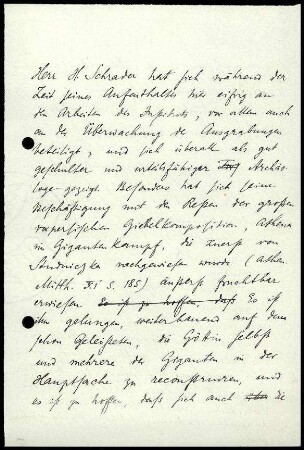 Herr H. Schrader hat sich während der
Zeit seines Aufenthaltes hier eifrig an
den Arbeiten des Instituts, vor allem auch
an der Überwachung der Ausgrabungen
beteiligt, und sich überall als gut
geschulter und urteilsfähiger Archäo-
loge gezeigt. Besonders hat sich seine
Beschäftigung mit den Resten der großen
vorpersischen Giebelkomposition, Athena
im Gigantenkampf, die zuerst von
Studniczka nachgewiesen wurde (Athen.
Mitth. XI S. 185) äußerst fruchtbar
erwiesen. Es ist zu hoffen, daß Es ist
ihm gelungen, weiterbauend auf dem
schon Geleisteten, die Göttin selbst
und mehrere der Giganten in der
Hauptsache zu reconstruiren, und
es ist zu hoffen, daß sich auch die